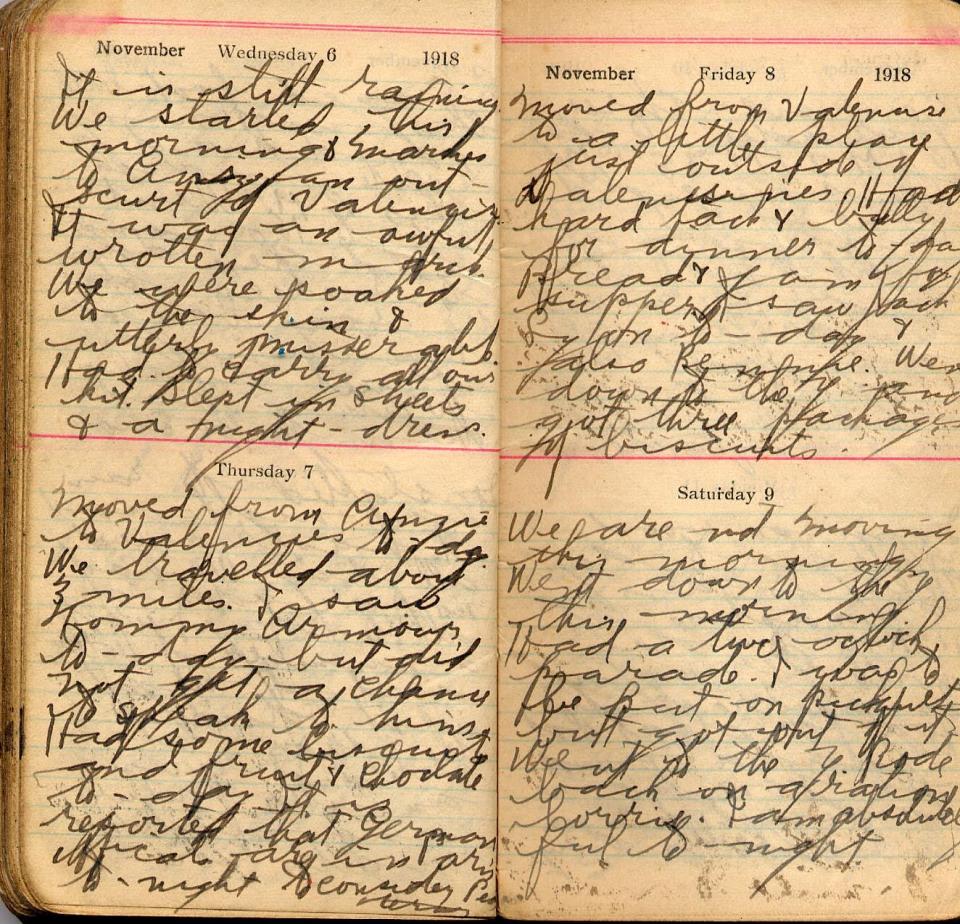 November Wednesday 6 1918
It is still raining
We started this
morning & march
to Anzin an out-
scurt of Valencin
It was an awful
wrotten march
We where soaked
to the skin &
utterly misserabl
Had to carry all our
kit. Slept in sheets
& a night-dress.
Thursday 7
Moved from Anzin
to Valennies to-day
We travelled about
3 miles. I saw
Tommy Armour
to-day but did
not get a chance
to speak to him
Had some
and fruit & Chodate
to-day. It is
reported that German
offical are in
to-night to consider
November Friday 8 1918
Moved from Valensise
to a little place
just outside of
Valenssines Had
hard tack & bully
for dinner to-day
Bread & jam for
supper I saw Jack
to-day &
also Went
down to the and
got three packages
of biscuits.
Saturday 9
We are not moving
this morning
Went down to the
this morning
Had a two oclock
parade. I was to
be put on picquet
but got out of it
We went to the Y Rode
back on a ration
lorry. I am absolute
ful to-night